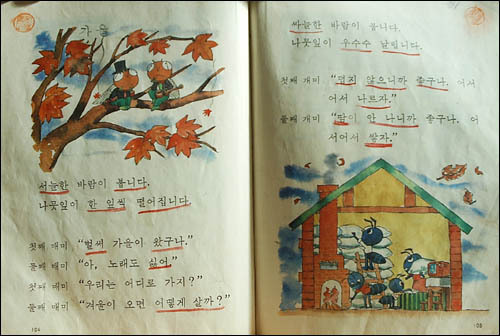 가을
서늘한 바람이 붑니다.
나뭇잎이 한 잎씩 떨어집니다.
첫째 매미 “벌써 가을이 왔구나.”
둘째 매미 “아, 노래도 싫어.”
첫째 매미 “우리는 어디로 가지?”
둘째 매미 “겨울이 오면 어떻게 살까?”
104
싸늘한 바람이 붑니다.
나뭇잎이 우수수 날립니다.
첫째 개미 “덥지 않으니까 좋구나. 어서
어서 나르자.”
둘째 개미 “땀이 안 나니까 좋구나. 어
서어서 쌓자.”
105